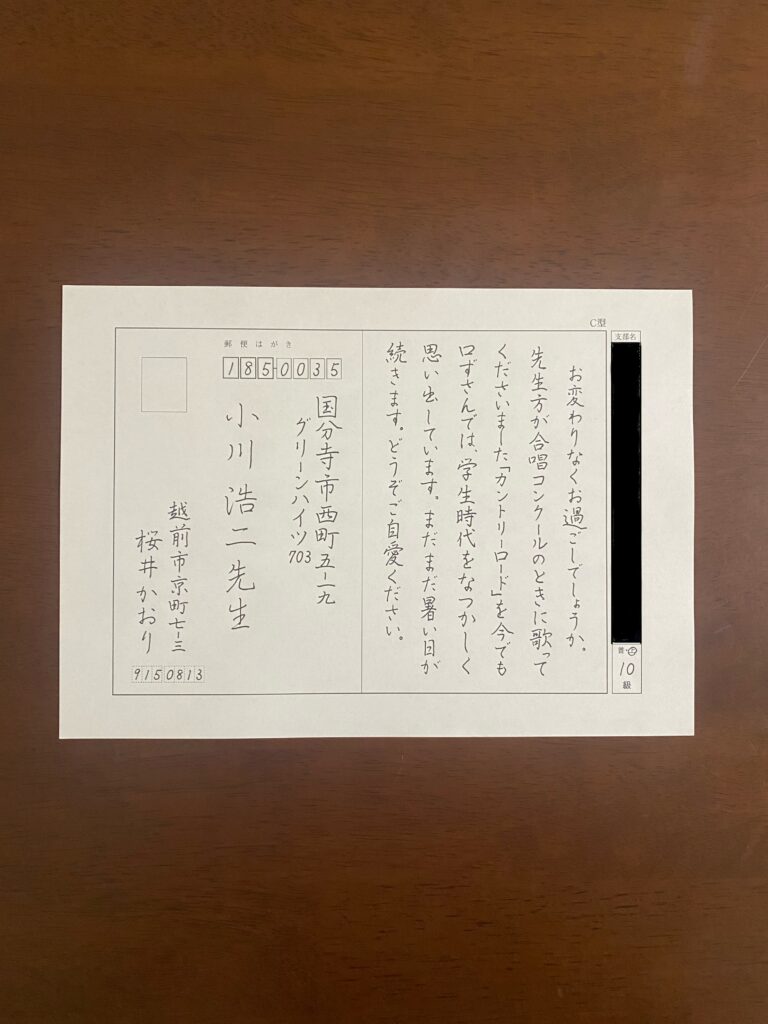 C型
支部名
普・硬
10
級
お変わりなくお過ごしでしょうか。
先生方が合唱コンクールのときに歌って
くださいました「カントリーロード」を今でも
口ずさんでは、学生時代をなつかしく
思い出しています。まだまだ暑い日が
続きます。どうぞご自愛ください。
郵便はがき
185-0035
国分寺市西町五-一九
グリーンハイツ703
小川浩二先生
越前市京町七-三
桜井かおり
9150813